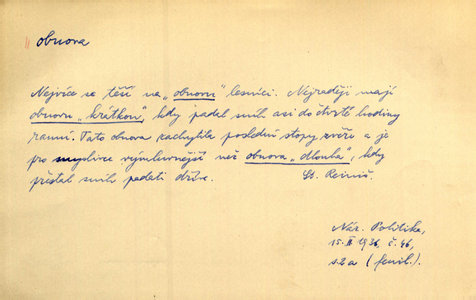 obnova
Nejvíce se těší na „obnovu" lesníci. Nejraději mají
obnovu „krátkou", kdy padal sníh asi do čtvrté hodiny
ranní. Tato obnova zachytila poslední stopy zvěře a je
pro myslivce výmluvnější než obnova „dlouhá", kdy
přestal sníh padati dříve. St. Reiniš.
Nár. Politika,
15.II 1936, č. 46,
s. 2a (feuil.).